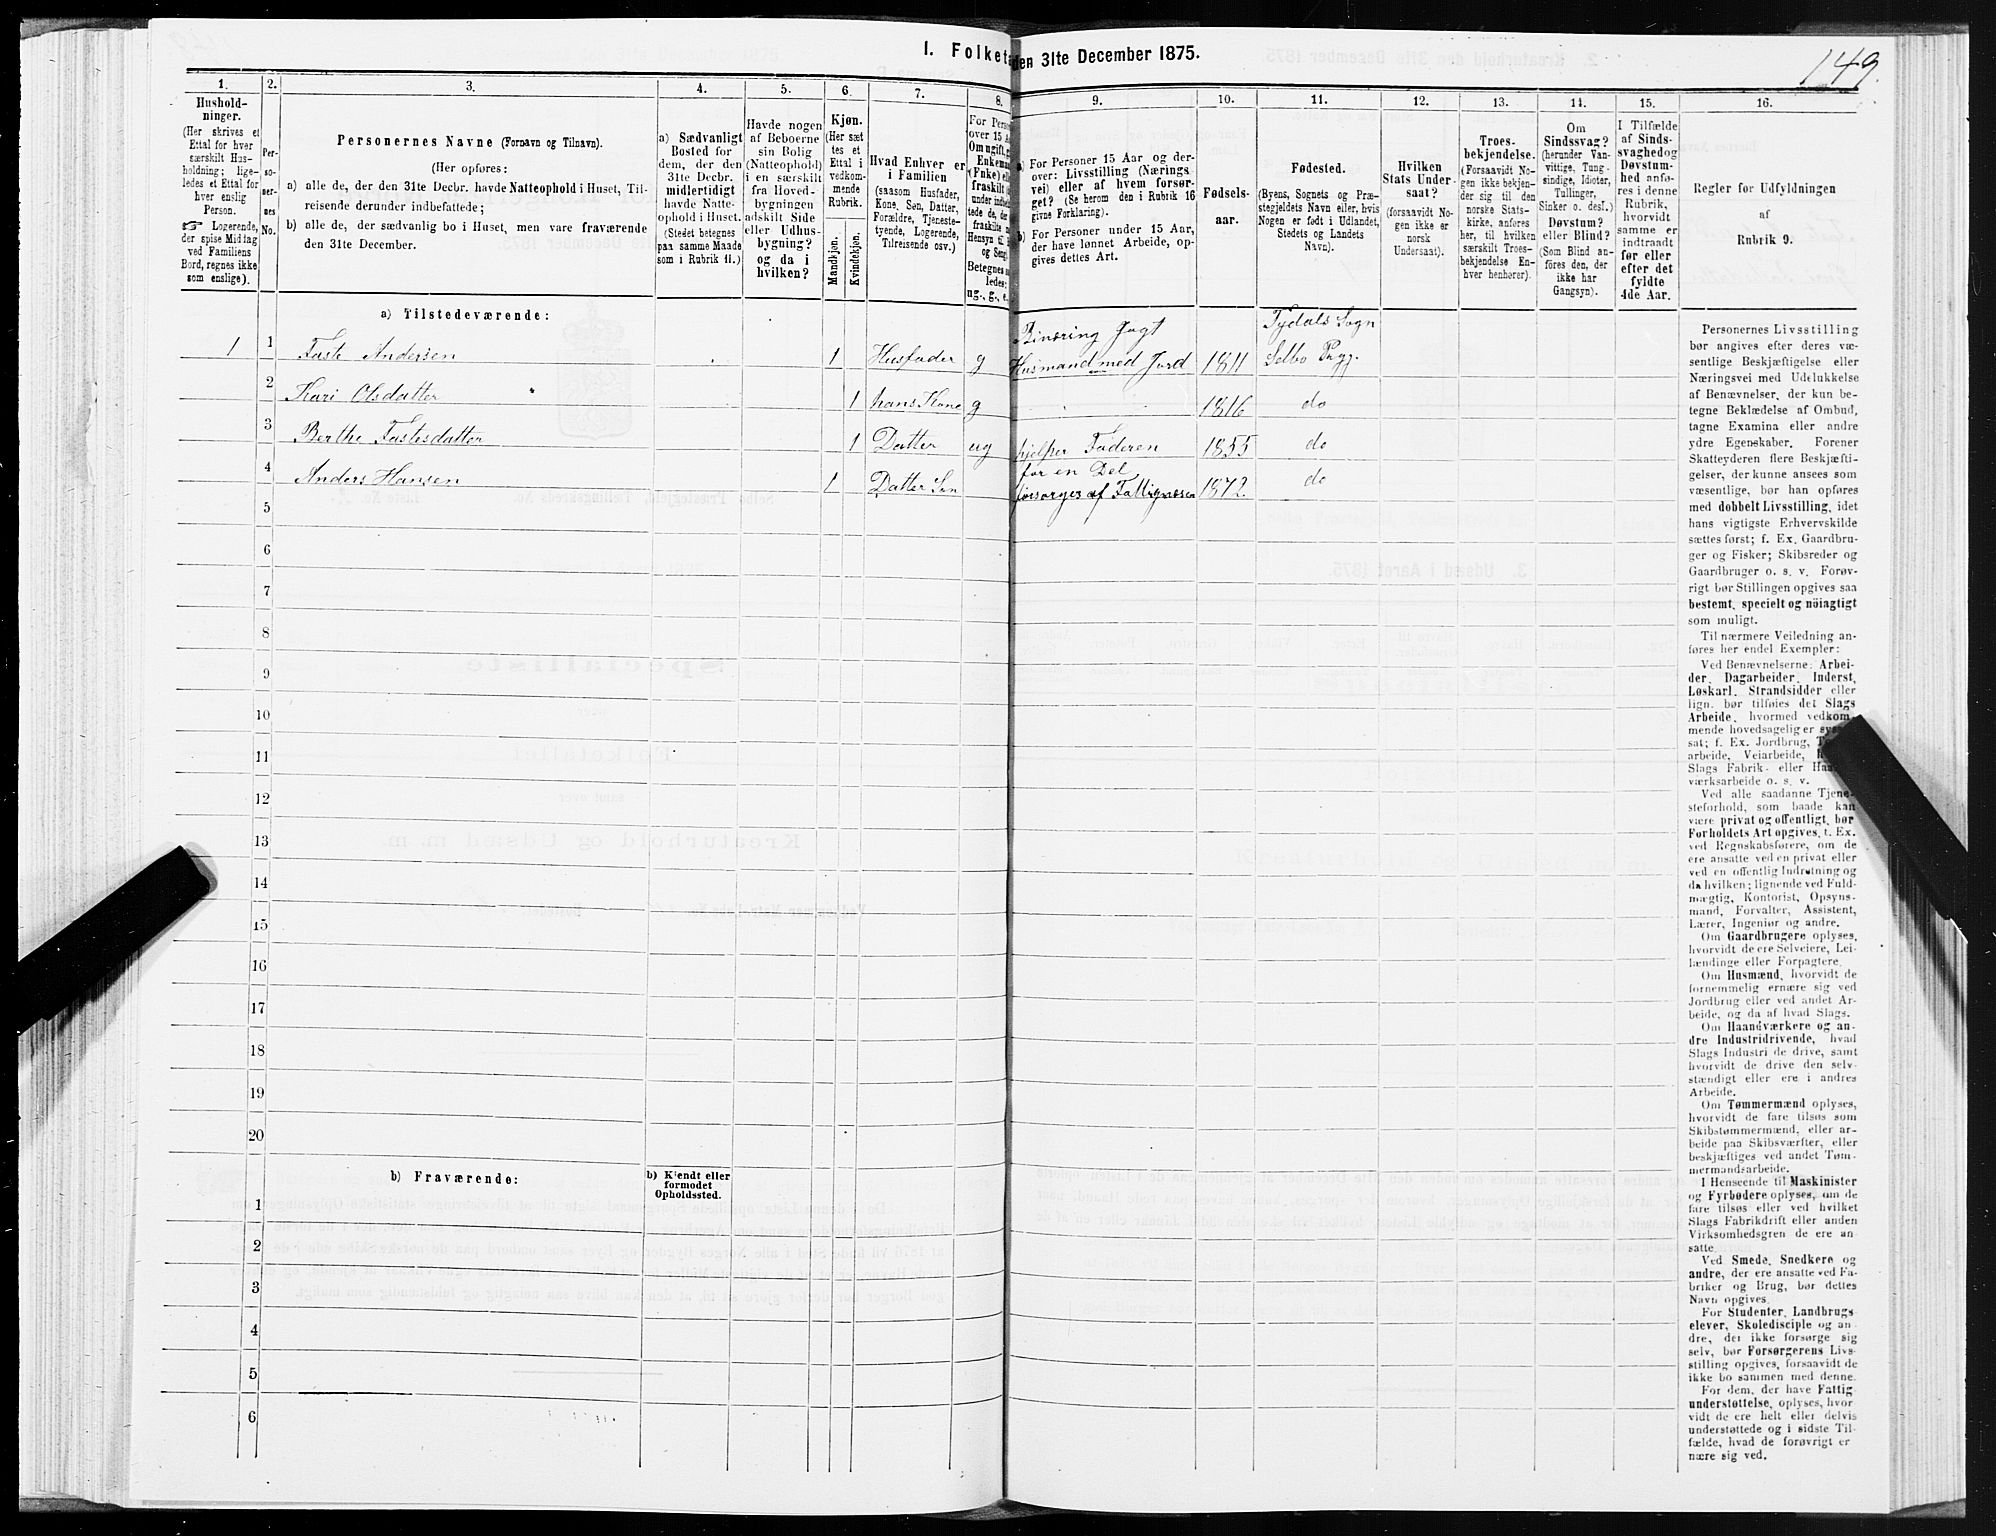 149.
I. Folketa den 31te December 1875.
1. 2. 3. 4. 5. 6. 7. 8. 9. 10. 11. 12. 13. 14. 15. 16.
Hushold-
ninger.
(Her skrives et
Ettal for hver
særskilt Hus-
holdning; lige-
ledes et Ettal for
hver enslig
Person.
☞ Logerende,
der spise Middag
ved Familiens
Bord, regnes ikke
som enslige).
Per-
so-
ner-
nes
No.
Personernes Navne (Fornavn og Tilnavn).
(Her opføres:
a) alle de, der den 31te Decbr. havde Natteophold i Huset, Til-
reisende derunder indbefattede;
b) alle de, der sædvanlig bo i Huset, men vare fraværende
den 31te December.
a) Sædvanligt
Bosted for
dem, der den
31te Decbr.
midlertidigt
havde Natte-
ophold i Huset.
(Stedet betegnes
paa samme Maade
som i Rubrik 11.)
Havde nogen
af Beboerne
sin Bolig
(Natteophold)
i en særskilt
fra Hoved-
bygningen
adskilt Side
eller Udhus-
bygning?
og da i
hvilken?
Kjøn.
(Her sæt
tes et
Ettal i
vedkom-
mende
Rubrik.
Mandkjøn.
Kvindekjøn.
Hvad Enhver er
i Familien
(saasom Husfader,
Kone, Søn, Datter,
Forældre, Tjeneste-
tyende, Logerende,
Tilreisende osv.)
For Person
over 15 A
Om ugift, g
Enkeman
(Fnke) ell
fraskilt
under indbe
tede de, de
fraskilte
Hensyn til
og Seng
Betegnes s
ledes:
ug., g., e.
a) For Personer 15 Aar og der-
over: Livsstilling (Nærings
vei) eller af hvem forsør-
get? (Se herom den i Rubrik 16
givne Forklaring).
b) For Personer under 15 Aar,
der have lønnet Arbeide, op-
gives dettes Art.
Fødsels-
aar.
Fødested.
(Byens, Sognets og Præ-
stegjeldets Navn eller, hvis
Nogen er født i Udlandet,
Stedets og Landets
Navn).
Hvilken
Stats Under
saat?
(forsaavidt No-
gen ikke er
norsk
Undersaat).
Troes-
bekjendelse.
(Forsaavidt No
gen ikke bekjen-
der sig til den
norske Stats-
kirke, anføres
her, til hvilken
særskilt Troes-
bekjendelse En-
hver henhører).
Om
Sindssvag?
(herunder Van-
vittige, Tung-
sindige, Idioter,
Tullinger,
Sinker o. desl.).
Døvstum?
eller Blind?
(Som Blind an-
føres den, der
ikke har
Gangsyn).
I Tilfælde
af Sinds-
svaghed og
Døvstum-
hed anfø-
res i denne
Rubrik,
hvorvidt
samme er
indtraadt
før eller
efter det
fyldte
4de Aar.
Regler for Udfyldningen
af
Rubrik 9.
a) Tilstedeværende:
Binæring Jagt Tydals Sogn
1 1 Faste Andersen 1 Husfader g Husmand med Jord 1811 Selbo Prgj.
2 Kari Olsdatter 1 hans Kone g 1816 do
3 Berthe Fastesdatter 1 Datter ug hjelper Faderen 1855 do
for en Del
4 Anders Hansen 1 Datter Søn forsørges af 1872. do
5
6
7
8
9
10
11
12
13
14
15
16
17
18
19
20
b) Fraværende:
b) Kjendt eller
formodet
Opholdssted.
1
2
3
4
5
6
Personernes Livsstilling
bør angives efter deres væ-
sentlige Beskjæftigelse eller
Næringsvei med Udelukkelse
af Benævnelser, der kun be-
tegne Beklædelse af Ombud,
tagne Examina eller andre
ydre Egenskaber. Forener
Skatteyderen flere Beskjæfti-
gelser, der kunne ansees som
væsentlige, bør han opføres
med dobbelt Livsstilling, idet
hans vigtigste Erhvervskilde
sættes først; f. Ex. Gaardbru-
ger og Fisker; Skibsreder og
Gaardbruger o. s. v. Forøv-
rigt bør Stillingen opgives saa
bestemt, specielt og nöiagtigt
som muligt.
Til nærmere Veiledning an-
føres her endel Exempler:
Ved Benævnelserne: Arbei-
der, Dagarbeider, Inderst,
Løskarl, Strandsidder eller
lign. bør tilføies det Slags
Arbeide, hvormed vedkom-
mende hovedsagelig er syssel
sat; f. Ex. Jordbrug,
arbeide, Veiarbeide,
Slags Fabrik- eller
værksarbeide o. s. v.
Ved alle saadanne Tjene-
steforhold, som baade kan
være privat og offentligt, bør
Forholdets Art opgives, t. Ex.
ved Regnskabsførere, om de
ere ansatte ved en privat eller
ved en offentlig Indretning og
da hvilken; lignende ved Fuld-
mægtig, Kontorist, Opsyns-
mand, Forvalter, Assistent,
Lærer, Ingeniør og andre.
Om Gaardbrugere oplyses,
hvorvidt de ere Selveiere, Lei-
lændinge eller Forpagtere.
Om Husmænd, hvorvidt de
fornemmelig ernære sig ved
Jordbrug eller ved andet Ar-
beide, og da af hvad Slags.
Om Haandværkere og an-
dre Industridrivende, hvad
Slags Industri de drive, samt
hvorvidt de drive den selv-
stændigt eller ere i andres
Arbeide.
Om Tømmermænd oplyses,
hvorvidt de fare tilsøs som
Skibstømmermænd, eller ar-
beide paa Skibsværfter, eller
beskjæftiges ved andet Tøm-
mermandsarbeide.
I Henseende til Maskinister
og Fyrbødere oplyses, om de
fare tilsøs eller ved hvilket
Slags Fabrikdrift eller anden
Virksomhedsgren de ere an-
satte.
Ved Smede, Snedkere og
andre, der ere ansatte ved Fa-
briker og Brug, bør dettes
Navn opgives.
For Studenter, Landbrugs-
elever, Skoledisciple og an-
dre, der ikke forsørge sig
selv, bør Forsørgerens Livs-
stilling opgives, forsaavidt de
ikke bo sammen med denne.
For dem, der have Fattig-
understøttelse, oplyses, hvor
vidt de ere helt eller delvis
understøttede og i sidste Til-
fælde, hvad de forøvrigt er
nære sig ved.